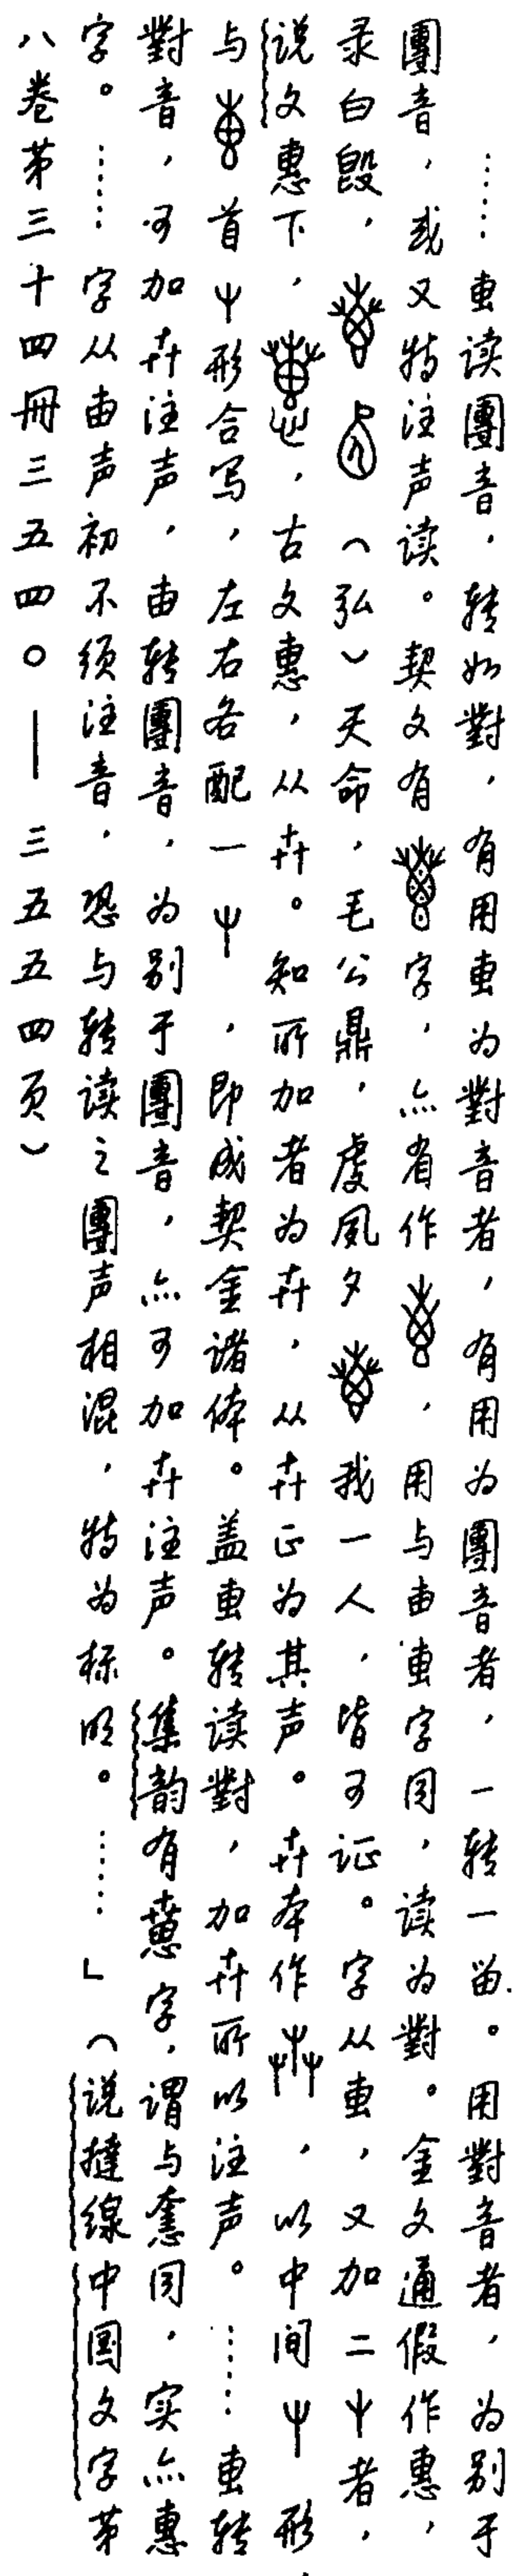 ……叀读團音，转如對，有用叀为對音者，有用为團音者，一转一畱。用對音者，为别于
團音，或又特注声读。契文有字，亦省作，用与由叀字同，读为對。金文通假作惠，
录白𣪘，（弘）天命，毛公鼎，虔夙夕我一人，皆可证。字从叀，又加二屮者，
说文惠下，，古文惠，从卉。知所加者为卉，从卉正为其声。卉本作，以中间屮形
与首屮形合写，左右各配一屮，即成契金诸体。盖叀转读對，加卉所以注声。……叀转
對音，可加卉注声，由转團音，为别于團音，亦可加卉注声。集韵有字，谓与㥣同，实亦惠
字。……字从由声初不须注音，恐与转读之團声相混，特为标明。……」（说㨨线中国文字第
八卷第三十四冊三五四〇——三五五四页）